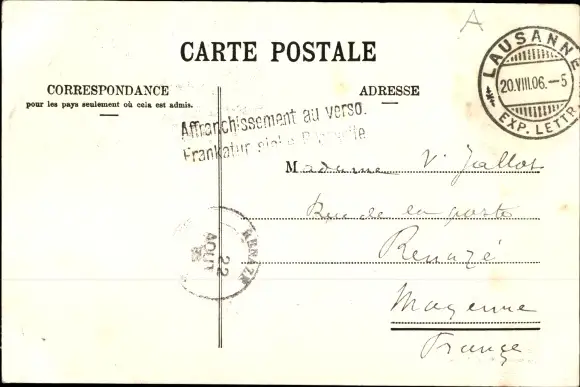 A
CARTE POSTALE
CORRESPONDANCE
pour les pays seulement où cela est admis.
ADRESSE
LAUSANNE
20.VIII.06.–5
EXP. LETTR.
Affranchissement au verso.
Frankatur siehe
Madame V. Jallot
Rue de la poste
Renazé
Mayenne
France
RENAZÉ
22
AOUT